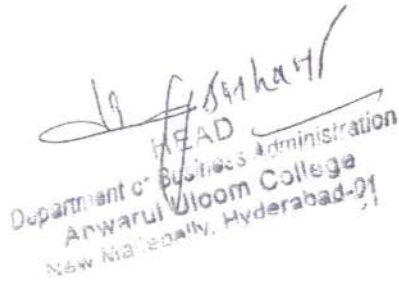 HEAD
Department of Business Administration
Anwarul Uloom College
New Mallepally, Hyderabad-01